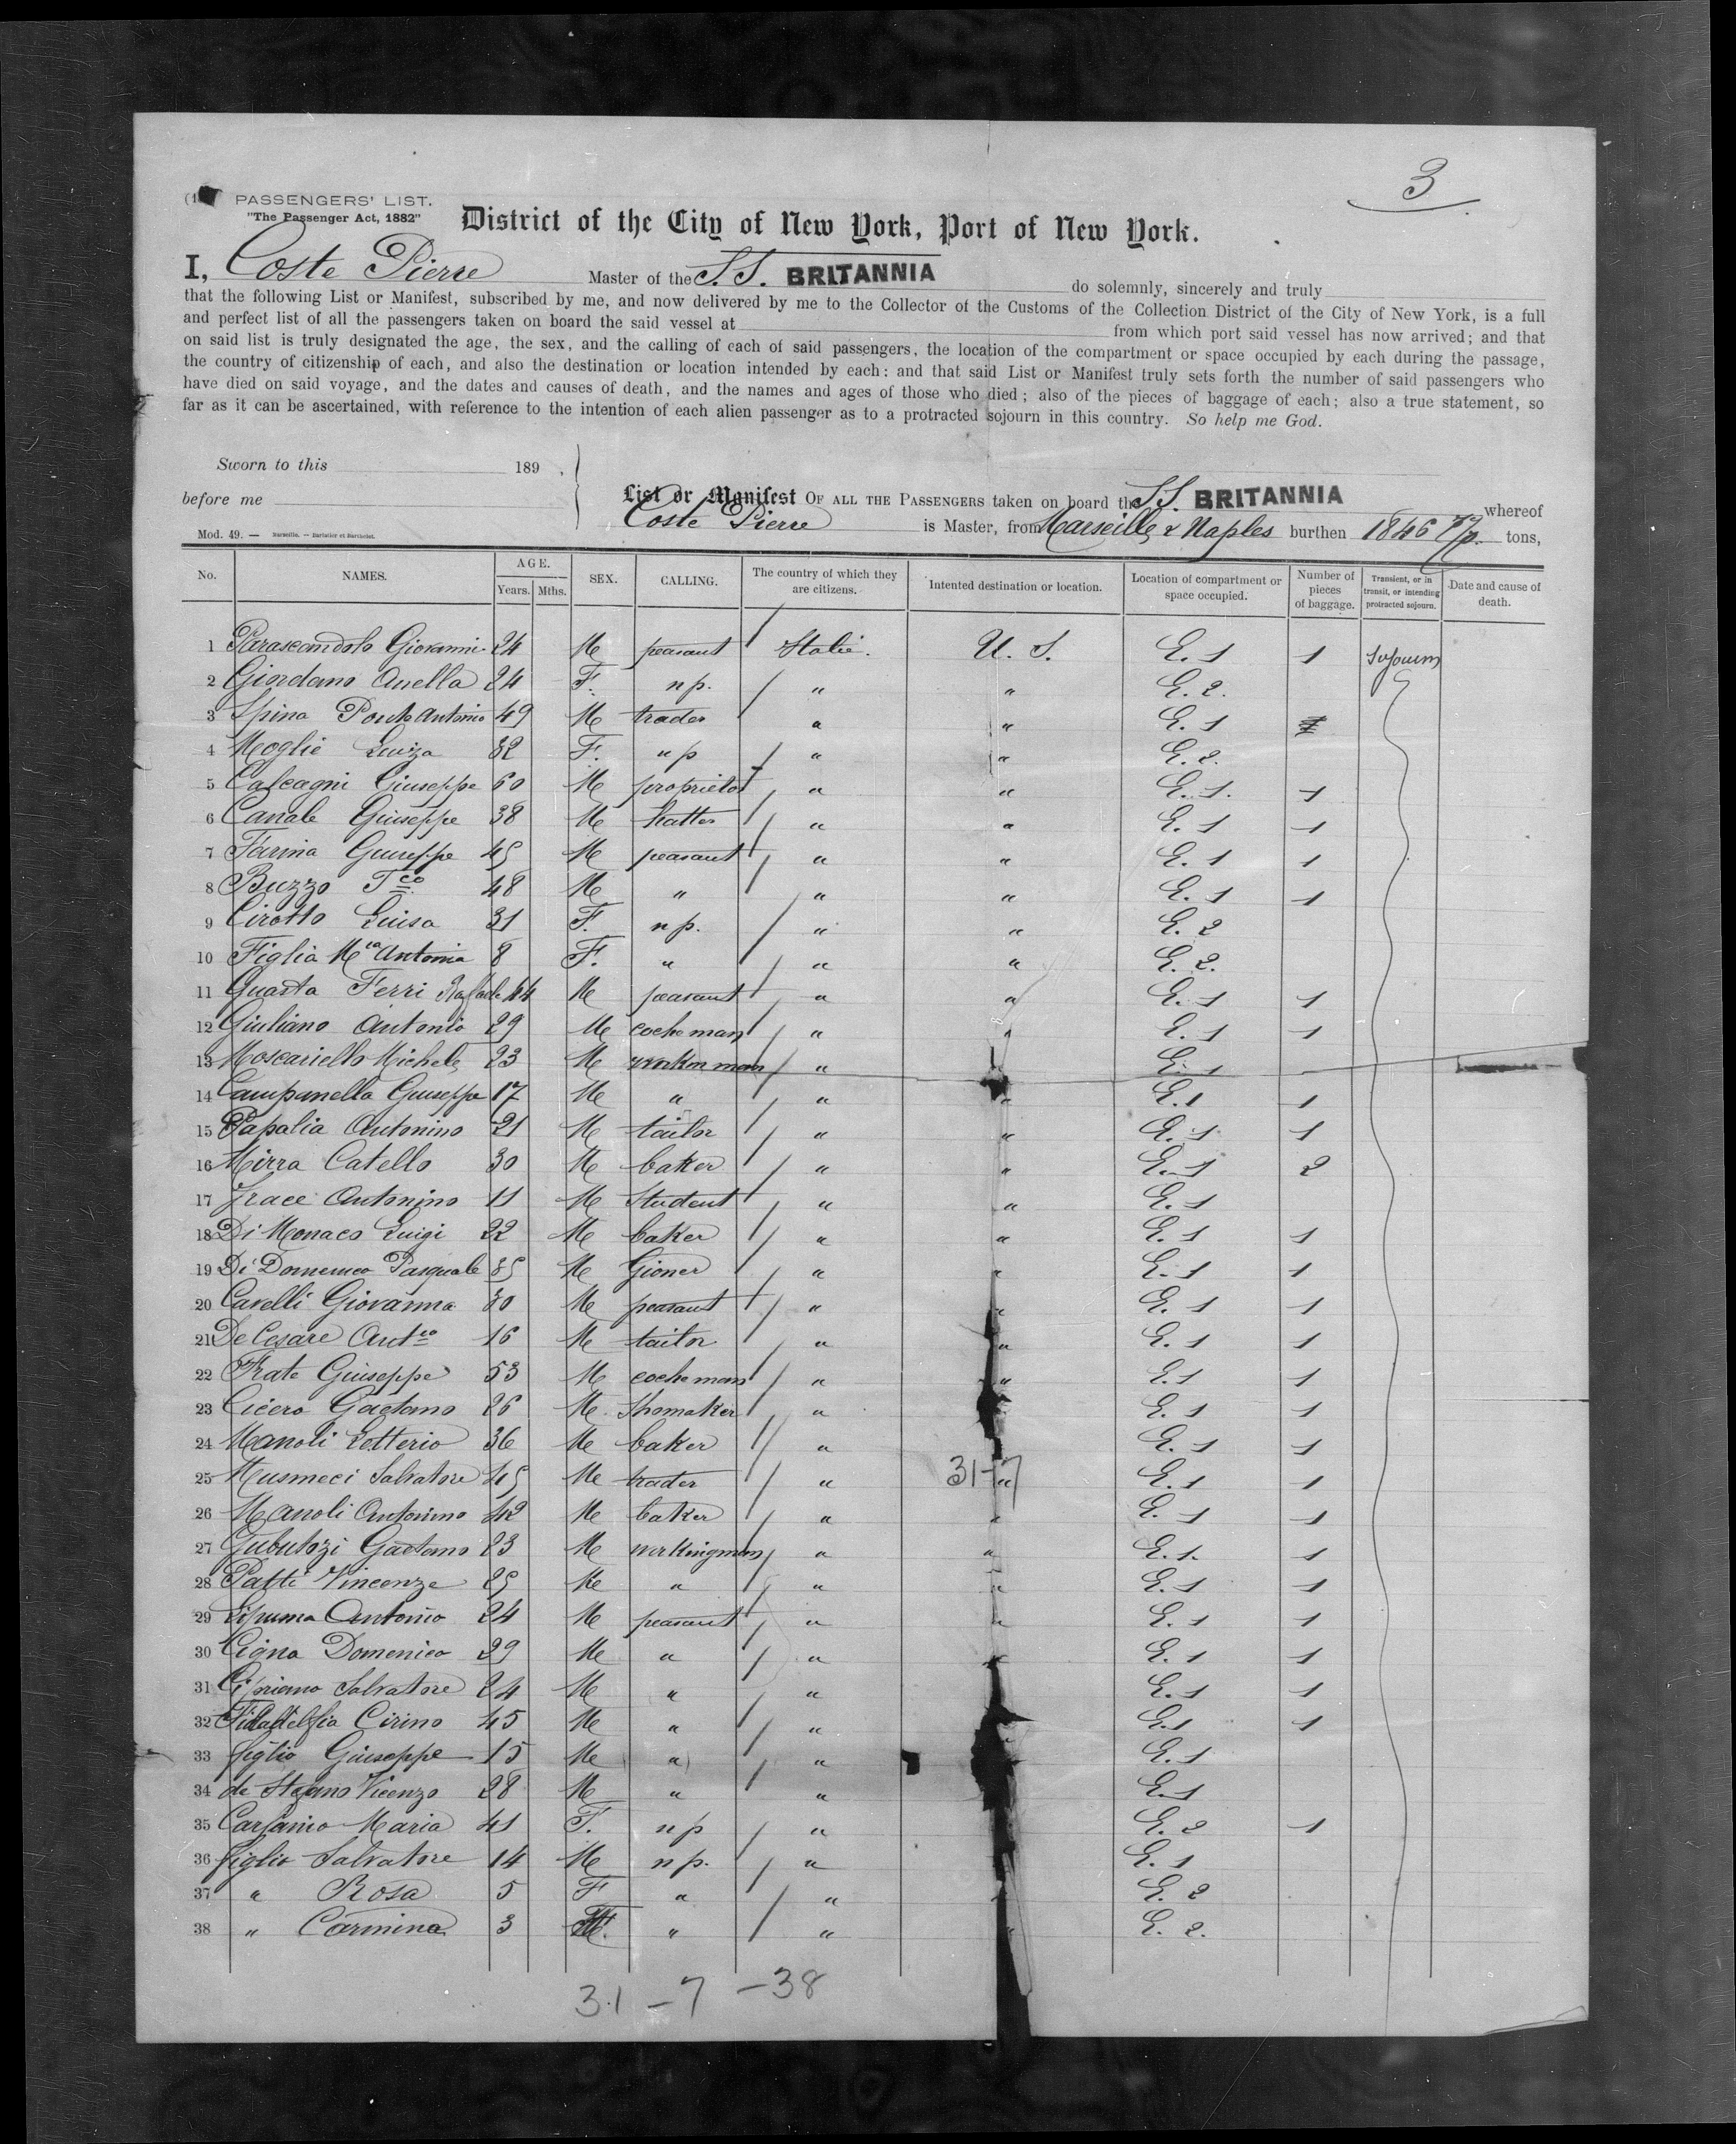 3
PASSENGERS' LIST.
"The Passenger Act, 1882"
District of the City of New York, Port of New York.
I, Coste Pierre Master of the S.S. BRITANNIA do solemnly, sincerely and truly
that the following List or Manifest, subscribed by me, and now delivered by me to the Collector of the Customs of the Collection District of the City of New York, is a full
and perfect list of all the passengers taken on board the said vessel at from which port said vessel has now arrived; and that
on said list is truly designated the age, the sex, and the calling of each of said passengers, the location of the compartment or space occupied by each during the passage,
the country of citizenship of each, and also the destination or location intended by each; and that said List or Manifest truly sets forth the number of said passengers who
have died on said voyage, and the dates and causes of death, and the names and ages of those who died; also of the pieces of baggage of each; also a true statement, so
far as it can be ascertained, with reference to the intention of each alien passenger as to a protracted sojourn in this country. So help me God.
Sworn to this 189 .
before me
List or Manifest OF ALL THE PASSENGERS taken on board the S.S. BRITANNIA whereof
Coste Pierre is Master, from Marseille & Naples burthen 1846 tons,
Mod. 49. — Marseille. — Barlatier et Barthelet.
No. NAMES. AGE. Years. Mths. SEX. CALLING. The country of which they are citizens. Intented destination or location. Location of compartment or space occupied. Number of pieces of baggage. Transient, or in transit, or intending protracted sojourn. Date and cause of death.
1 Parascandolo Giovanni 24 M peasant Italie. U. S. E. 1 1 Sojourn
2 Giordano Anella 24 F. n p. " " E. 2.
3 Spina Antonio 49 M trader " " E. 1
4 Moglie Luiza 32 F. n p " " E. 2.
5 Calcagni Giuseppe 60 M proprietor " " E. 1. 1
6 Canale Giuseppe 38 M hatter " " E. 1 1
7 Farina Giuseppe 45 M peasant " " E. 1 1
8 Buzzo Fco 48 M " " " E. 1 1
9 Cirotto Luisa 31 F. n p. " " E. 2
10 Figlia Mca Antonia 8 F. " " " E. 2.
11 Guasta Ferri Raffaele 44 M peasant " " E. 1 1
12 Giuliano Antonio 29 M cocheman " " E. 1 1
13 Moscariello Michele 23 M workin man " E. 1
14 Campanella Giuseppe 17 M " " " E. 1 1
15 Papalia Antonino 21 M tailor " " E. 1 1
16 Mirra Catello 30 M baker " " E. 1 2
17 Irace Antonino 11 M Student " " E. 1
18 Di Monaco Luigi 22 M baker " " E. 1 1
19 Di Domenico Pasquale 35 M Gioner " " E. 1 1
20 Cavelli Giovanna 30 M peasant " " E. 1 1
21 De Cesare Antco 16 M tailor " " E. 1 1
22 Frate Giuseppe 53 M cocheman " " E. 1 1
23 Cicero Gaetano 26 M Shomaker " E. 1 1
24 Manoli Letterio 36 M baker " E. 1 1
25 Musmeci Salvatore 45 M trader " 31-7 " E. 1 1
26 Manoli Antonino 42 M baker " " E. 1 1
27 Gubutozi Gaetano 23 M workingman " " E. 1. 1
28 Patti Vincenze 25 M " " " E. 1 1
29 Lipuma Antonio 24 M peasant " " E. 1 1
30 Cigna Domenico 29 M " " E. 1 1
31 Cipriano Salvatore 24 M " " E. 1 1
32 Filadelfia Cirino 45 M " " E. 1 1
33 figlio Giuseppe 15 M " " E. 1
34 de Stefano Vicenzo 28 M " " E. 1
35 Carfaino Maria 41 F. n p " E. 2 1
36 figlio Salvatore 14 M n p. " E. 1
37 " Rosa 5 F " " E. 2
38 " Carmina 3 " " " E. 2.
31 - 7 - 38